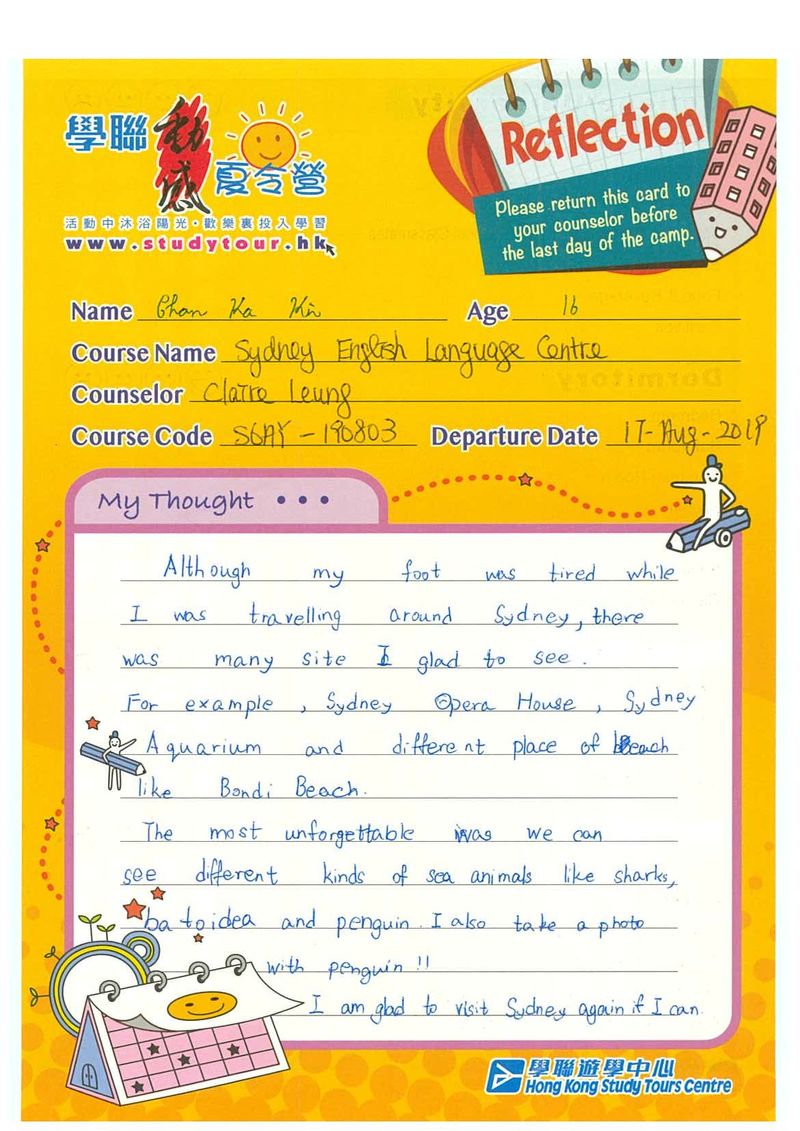 學聯動感夏令營
活動中沐浴陽光・歡樂裏投入學習
www.studytour.hk
Reflection
Please return this card to
your counselor before
the last day of the camp.
Name Chan Ka Kin Age 16
Course Name Sydney English Language Centre
Counselor Claire Leung
Course Code SGAY - 190803 Departure Date 17-Aug-2019
My Thought • • •
Although my foot was tired while
I was travelling around Sydney, there
was many site I glad to see.
For example, Sydney Opera House, Sydney
Aquarium and different place of Beach
like Bondi Beach.
The most unforgettable was we can
see different kinds of sea animals like sharks,
batoidea and penguin. I also take a photo
with penguin !!
I am glad to visit Sydney again if I can.
學聯遊學中心
Hong Kong Study Tours Centre